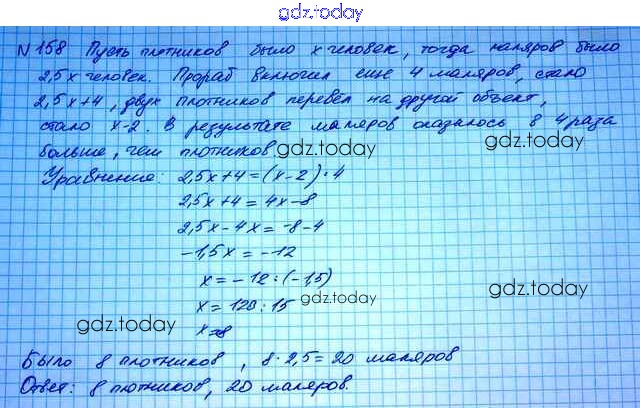 gdz.today
N 158 Пусть плотников было x человек, тогда маляров было
2,5x человек. Прораб включил еще 4 маляров, стало
2,5x+4, двух плотников перевёл на другой объект,
стало x-2. В результате маляров оказалось в 4 раза
больше, чем плотников. gdz.today
gdz.today
Уравнение: 2,5x+4=(x-2)·4
2,5x+4=4x-8
2,5x-4x=-8-4
-1,5x=-12
x=-12:(-1,5)
x=120:15
gdz.today
gdz.today
gdz.today
x=8
Было 8 плотников, 8·2,5=20 маляров
Ответ: 8 плотников, 20 маляров.